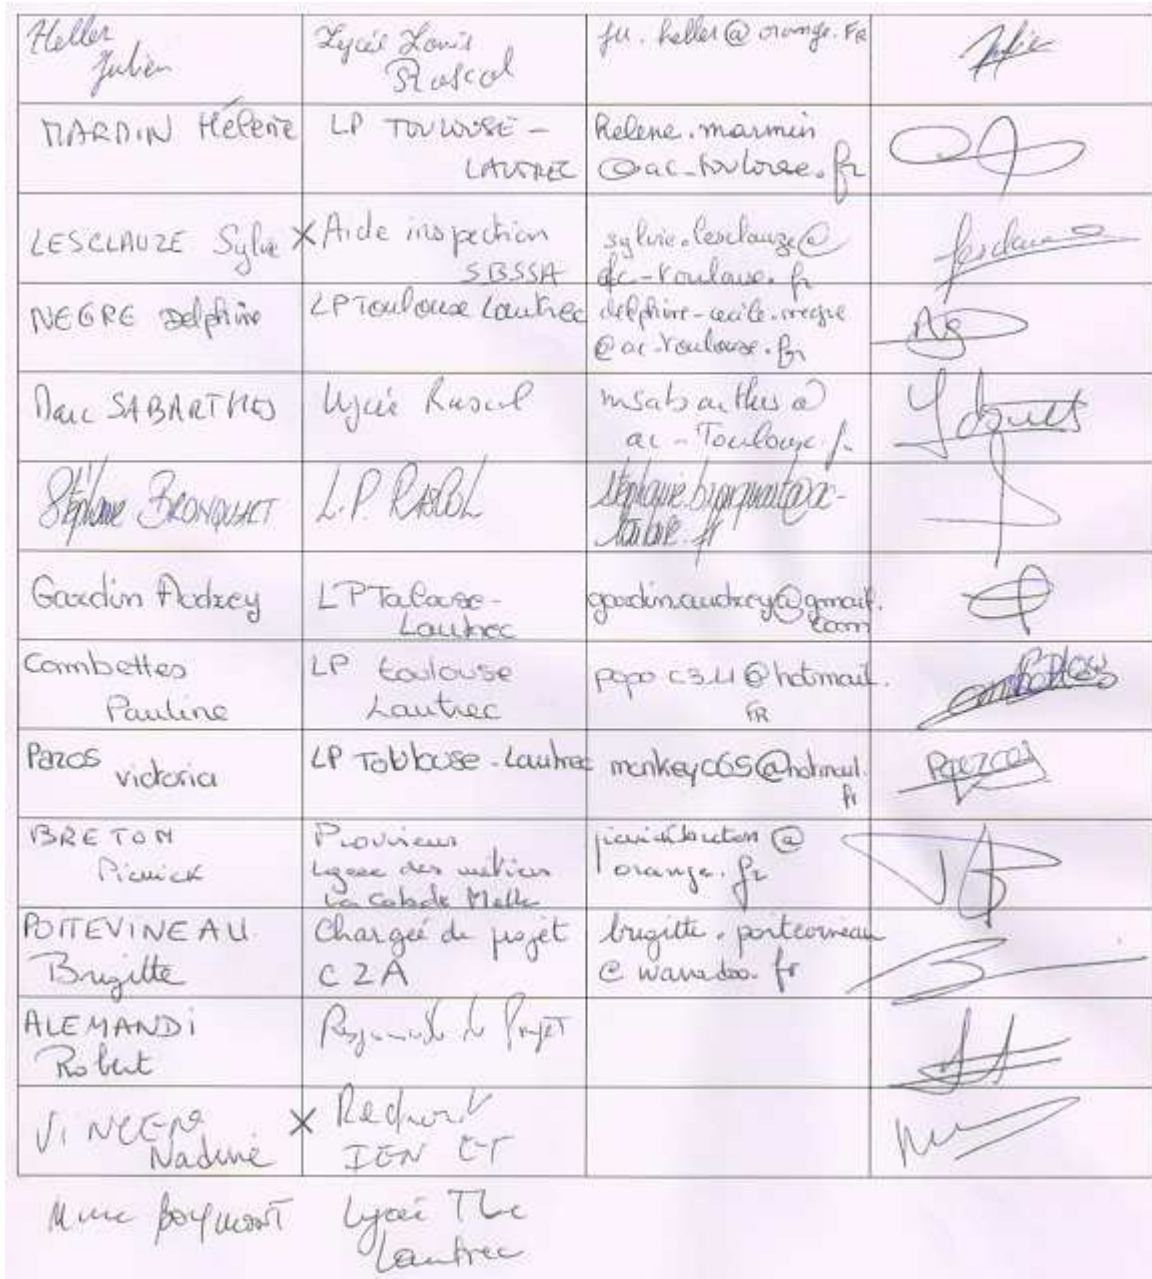 Heller
Julien
Lycée Louis
Rascol
ju.heller@orange.FR
MARMIN Hélène
LP TOULOUSE-
LAUTREC
helene.marmin
@ac-toulouse.fr
LESCLAUZE Sylvie
X Aide inspection
SBSSA
sylvie.lesclauze@
ac-toulouse.fr
NEGRE Delphine
LP Toulouse Lautrec
delphine-cecile.negre
@ac-toulouse.fr
Marc SABARTHES
Lycée Rascol
msabarthes@
ac-Toulouse.fr
Stéphane BRONQUART
L.P. RASCOL
stephane.bronquart@ac-
toulouse.fr
Gardin Audrey
LP Toulouse-
Lautrec
gardin.audrey@gmail.
com
Combettes
Pauline
LP toulouse
Lautrec
@hotmail.
FR
Pazos
victoria
LP Toulouse-Lautrec
monkey065@hotmail.
fr
BRETON
Pierrick
Proviseur
Lycée des métiers
Melle
@
orange.fr
POITEVINEAU
Brigitte
Chargée de projet
C2A
brigitte.
@wanadoo.fr
ALEMANDI
Robert
Responsable de Projet
VINCENT
Nadine
X
IEN ET
Mme
Lycée Tlse
Lautrec